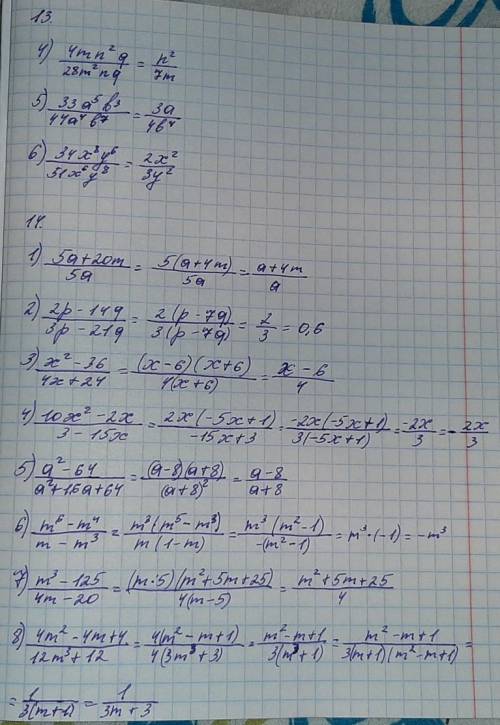 13.
4) 4mn²q/28m²nq = n²/7m
5) 33a⁵b³/44a⁴b⁷ = 3a/4b⁴
6) 34x⁸y⁶/51x⁶y⁸ = 2x²/3y²
14.
1) 5a+20m/5a = 5(a+4m)/5a = a+4m/a
2) 2p-14q/3p-21q = 2(p-7q)/3(p-7q) = 2/3 = 0,6
3) x²-36/4x+24 = (x-6)(x+6)/4(x+6) = x-6/4
4) 10x²-2x/3-15x = 2x(-5x+1)/-15x+3 = -2x(-5x+1)/3(-5x+1) = -2x/3 = -2x/3
5) a²-64/a²+16a+64 = (a-8)(a+8)/(a+8)² = a-8/a+8
6) m⁶-m⁴/m-m³ = m³(m⁵-m³)/m(1-m) = m³(m²-1)/-(m²-1) = m³·(-1) = -m³
7) m³-125/4m-20 = (m-5)(m²+5m+25)/4(m-5) = m²+5m+25/4
8) 4m²-4m+4/12m³+12 = 4(m²-m+1)/4(3m³+3) = m²-m+1/3(m³+1) = m²-m+1/3(m+1)(m²-m+1) =
= 1/3(m+1) = 1/3m+3